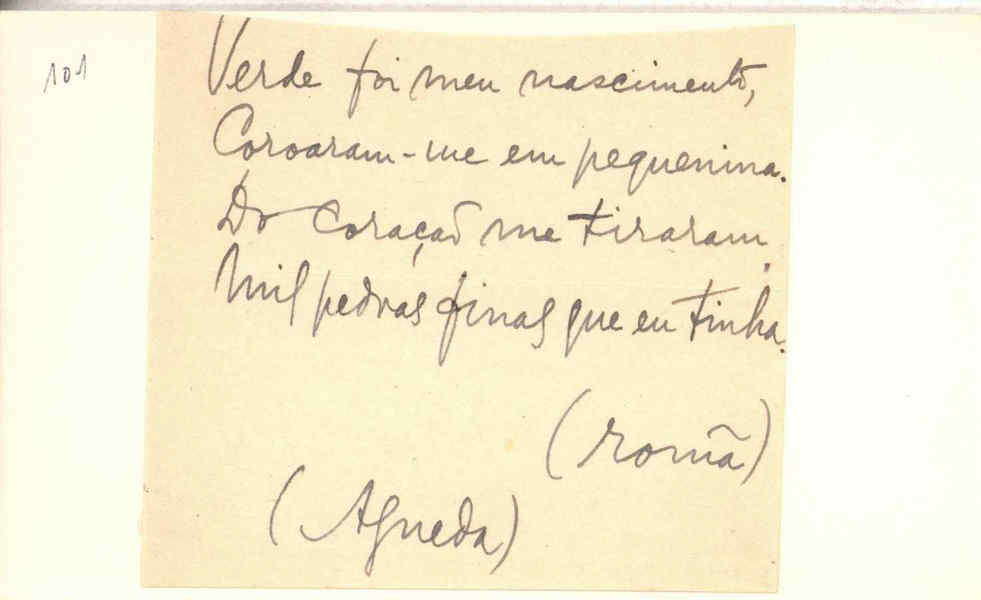 101
Verde foi meu nascimento,
Coroaram-me em pequenina.
Do coração me tiraram
Mil pedras finas que eu tinha.
(romã)
(Agueda)